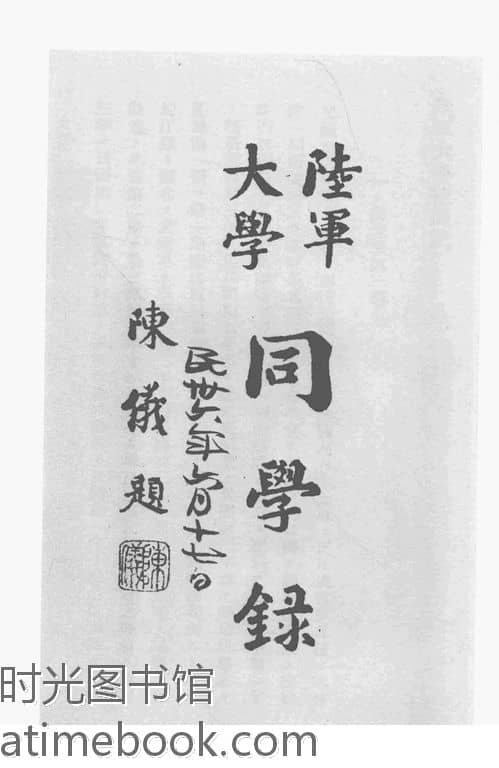 陸軍
大學
同學錄
民卅六年六月十七日
陳儀題
陳儀
时光图书馆
atimebook.com